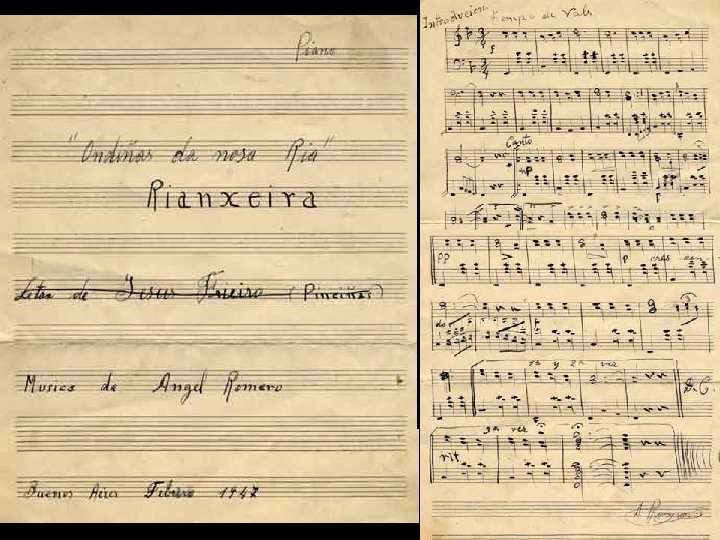 Piano
"Ondiñas da nosa Ria"
Rianxeira
Letra de Jesus Frieiro (Pinciñas)
Musica de Angel Romero
Buenos Aires Febrero 1947
Introduccion. Tempo de Vals
f
Canto
mp
pp
p cres cen
do f
1ª y 2ª vez
D.C.
3ª vez
rit
A. Romero